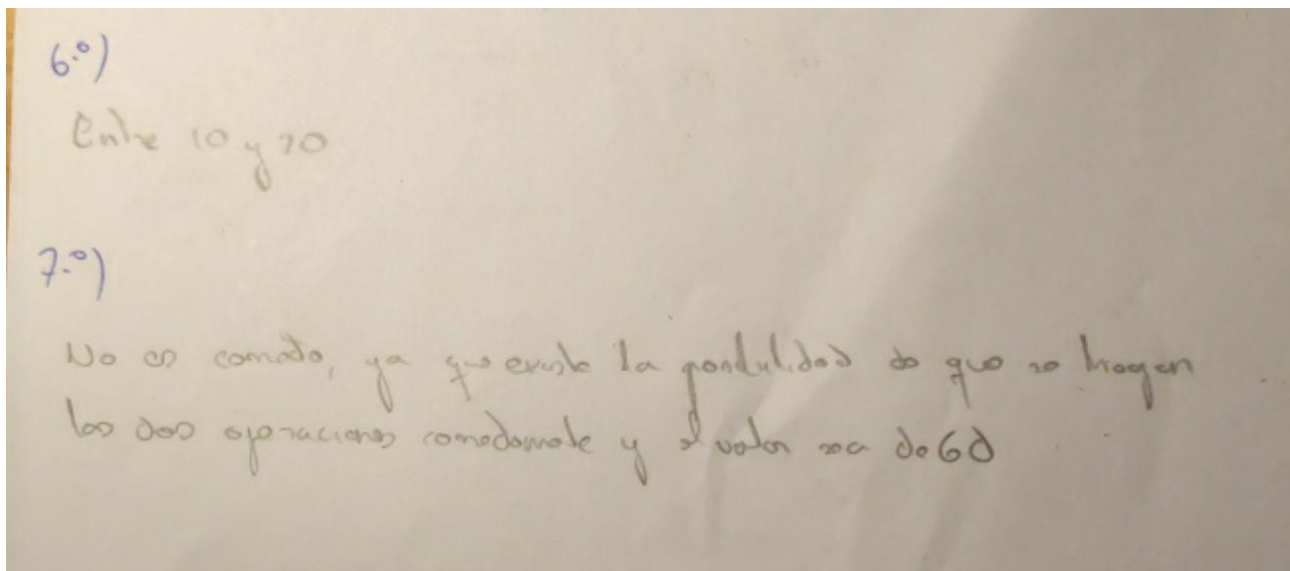 6.º)
Entre 10 y 20
7.º)
No es correcto, ya que existe la posibilidad de que se hagan
las dos operaciones correctamente y el valor sea de 60